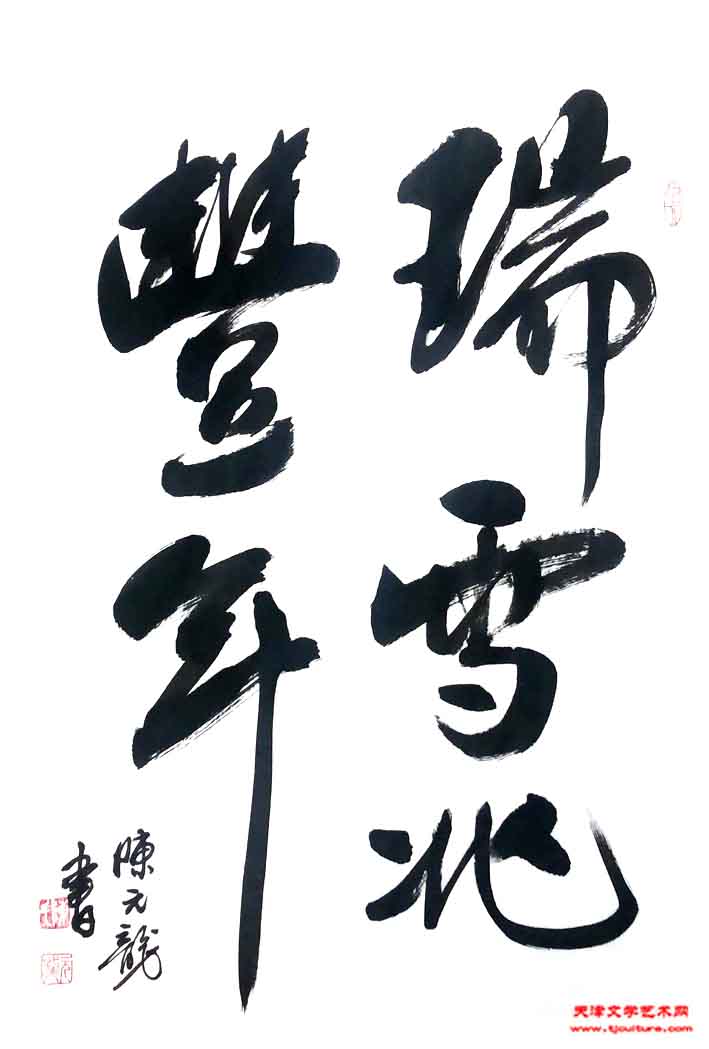 瑞雪兆
豐年
陳元龍
書
天津文学艺术网
www.tjculture.com